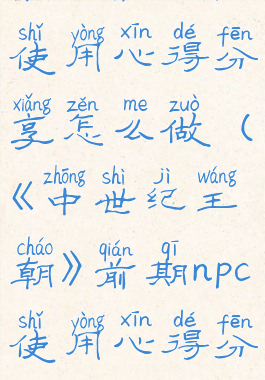 shǐ yòng xīn dé fēn
使用心得分
xiǎng zěn me zuò
享怎么做（
zhōng shì jì wáng
《中世纪王
cháo qián qī
朝》前期npc
shǐ yòng xīn dé fēn
使用心得分